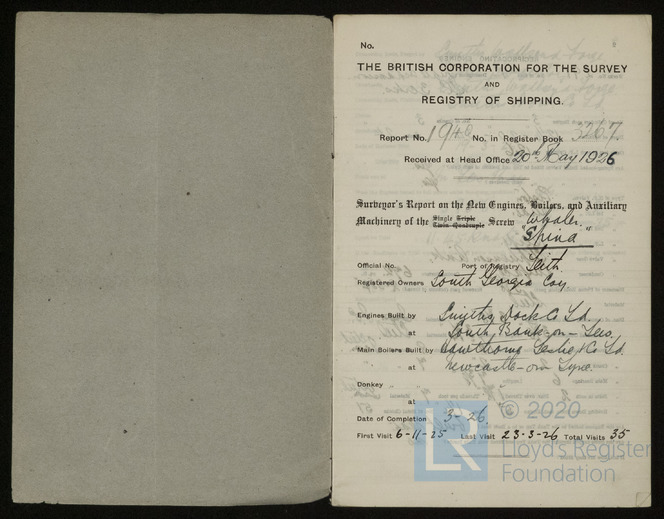 No.
THE BRITISH CORPORATION FOR THE SURVEY
AND
REGISTRY OF SHIPPING.
Report No. 1946 No. in Register Book 3267
Received at Head Office 20th May 1926
Surveyor's Report on the New Engines, Boilers, and Auxiliary
Machinery of the Single Triple Twin Quadruple Screw Whaler
"Spina"
Official No. Port of Registry Leith
Registered Owners South Georgia Coy
Engines Built by Smiths Dock Co Ld.
at South Bank-on-Tees
Main Boilers Built by Hawthorns Leslie & Co Ld.
at Newcastle-on-Tyne.
Donkey " "
at
Date of Completion 3-26.
First Visit 6-11-25 Last Visit 23-3-26 Total Visits 35
LR © 2020
Lloyd's Register
Foundation